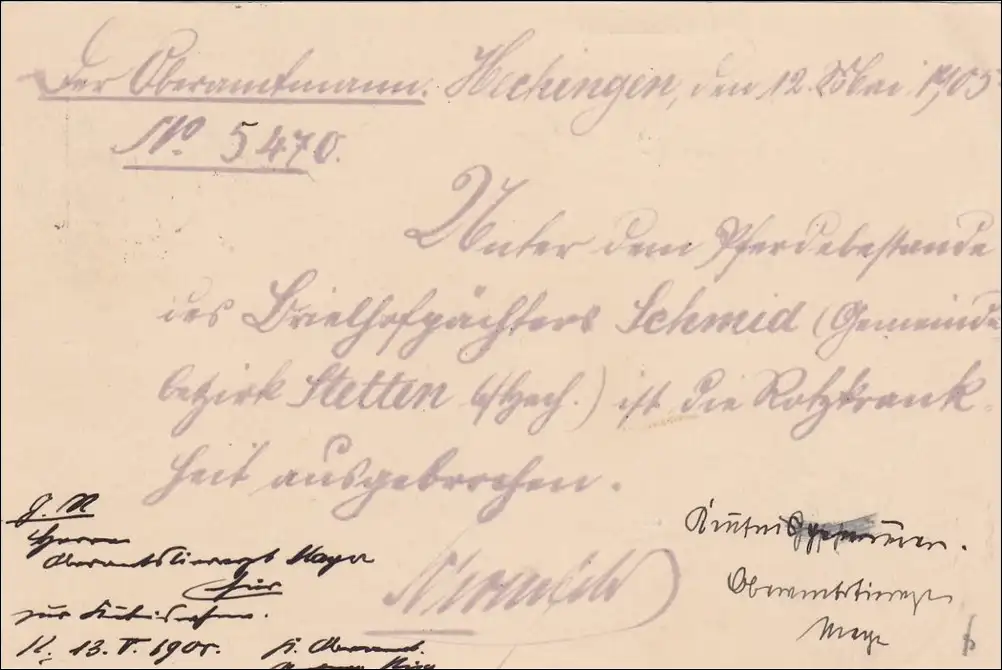 Der Oberamtmann. Hechingen, den 12. Mai 1905
No. 5470.
Unter dem Pferdebestande
des Brielhofpächters Schmid (Gemeinde-
bezirk Stetten b/Hech.) ist die Rotzkrank-
heit ausgebrochen.
G. R
Herrn
Oberamtstierarzt Mayer
hier
zur Kenntnisnahme.
H. 13. V. 1905. K. Oberamt.
Kenntnisgenommen.
Oberamtstierarzt
Mayer